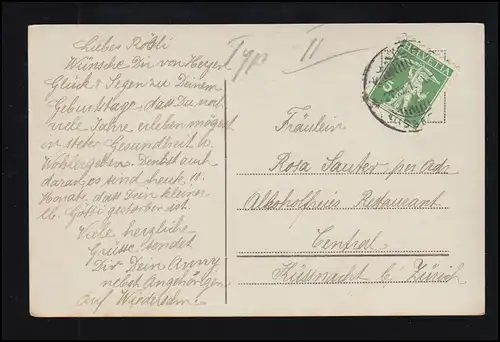 Liebes Rösli
Wünsche Dir von Herzen
Glück & Segen zu Deinem
Geburtstage, dass Du noch
viele Jahre erleben mögest
in steter Gesundheit u.
Wohlergehen. Denkst auch
daran, es sind heute 11
Monate, dass Dein kleiner
lb. Götti gestorben ist.
Viele herzliche
Grüsse sendet
Dir Dein Anny
nebst Angehörigen
Auf Wiedersehn!
Typ II
HELVETIA
5
Fräulein
Rosa Sauter per Adr.
Alkoholfreies Restaurant
Central
Küsnacht b/ Zürich